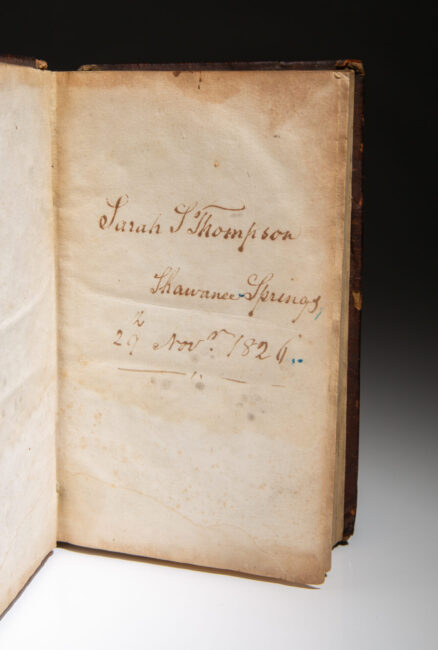 Sarah S Thompson
Shawanee Springs,
29 Novr. 1826.